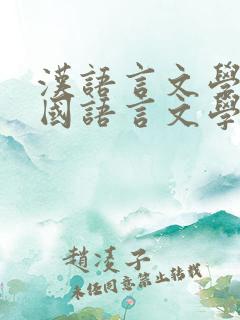 漢語言文學
國語言文學
趙凌子
未經同意禁止轉載